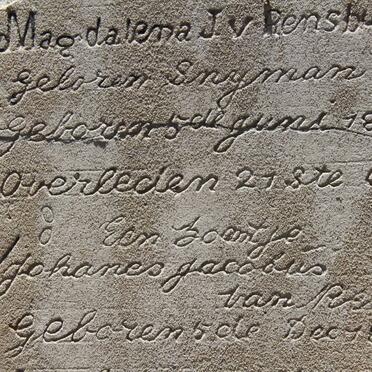 Magdalena J v Rensb
geloren Snyman
Geboren 5de guni 18
Overleden 21 ste
Een zoontje
Johanes jacobus
van Re
Geboren 5de Dec 1